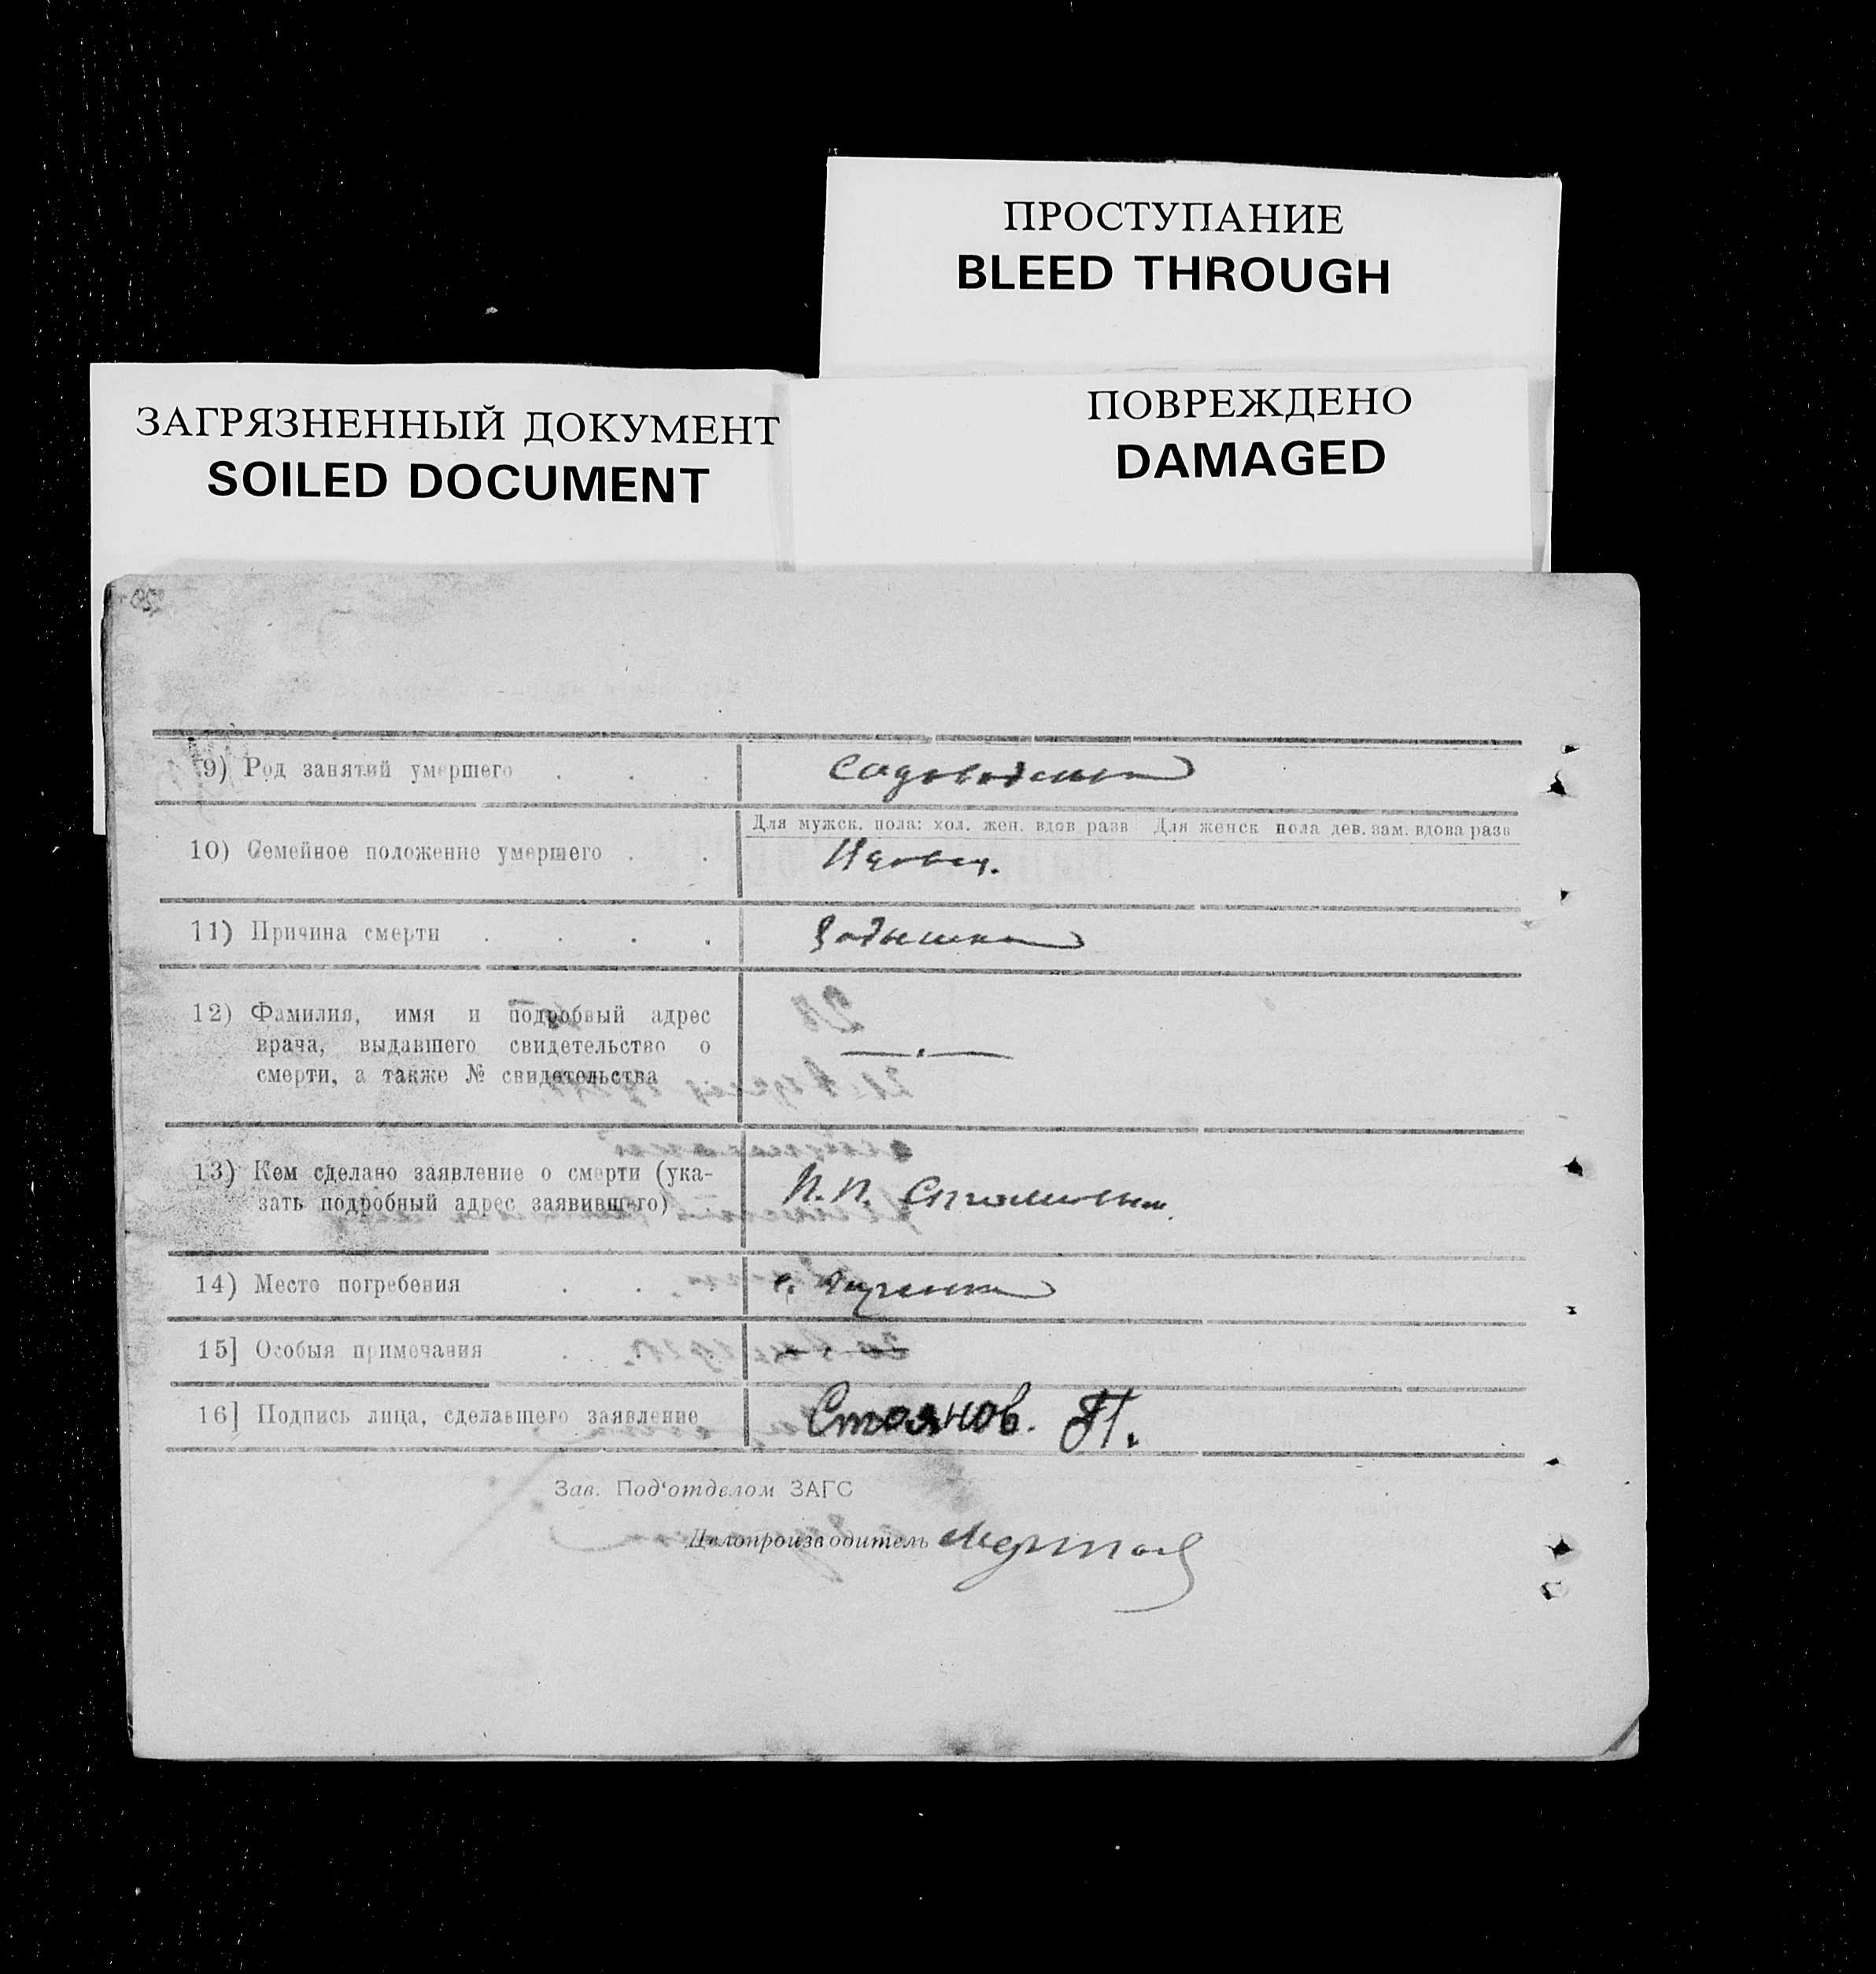 ПРОСТУПАНИЕ
BLEED THROUGH
ЗАГРЯЗНЕННЫЙ ДОКУМЕНТ
SOILED DOCUMENT
ПОВРЕЖДЕНО
DAMAGED
9) Род занятий умершего . . .
Для мужск. пола: хол. жен. вдов разв Для женск пола дев. зам. вдова разв
10) Семейное положение умершего . . Вдовец.
11) Причина смерти . . . . Одышка
12) Фамилия, имя и подробный адрес
врача, выдавшего свидетельство о
смерти, а также № свидетельства
13) Кем сделано заявление о смерти (ука-
зать подробный адрес заявившего)
П. П. Стояновым
14) Место погребения . . . с.
15] Особыя примечания . . .
16] Подпись лица, сделавшего заявление Стоянов. П.
Зав. Под'отделом ЗАГС
Делопроизводитель